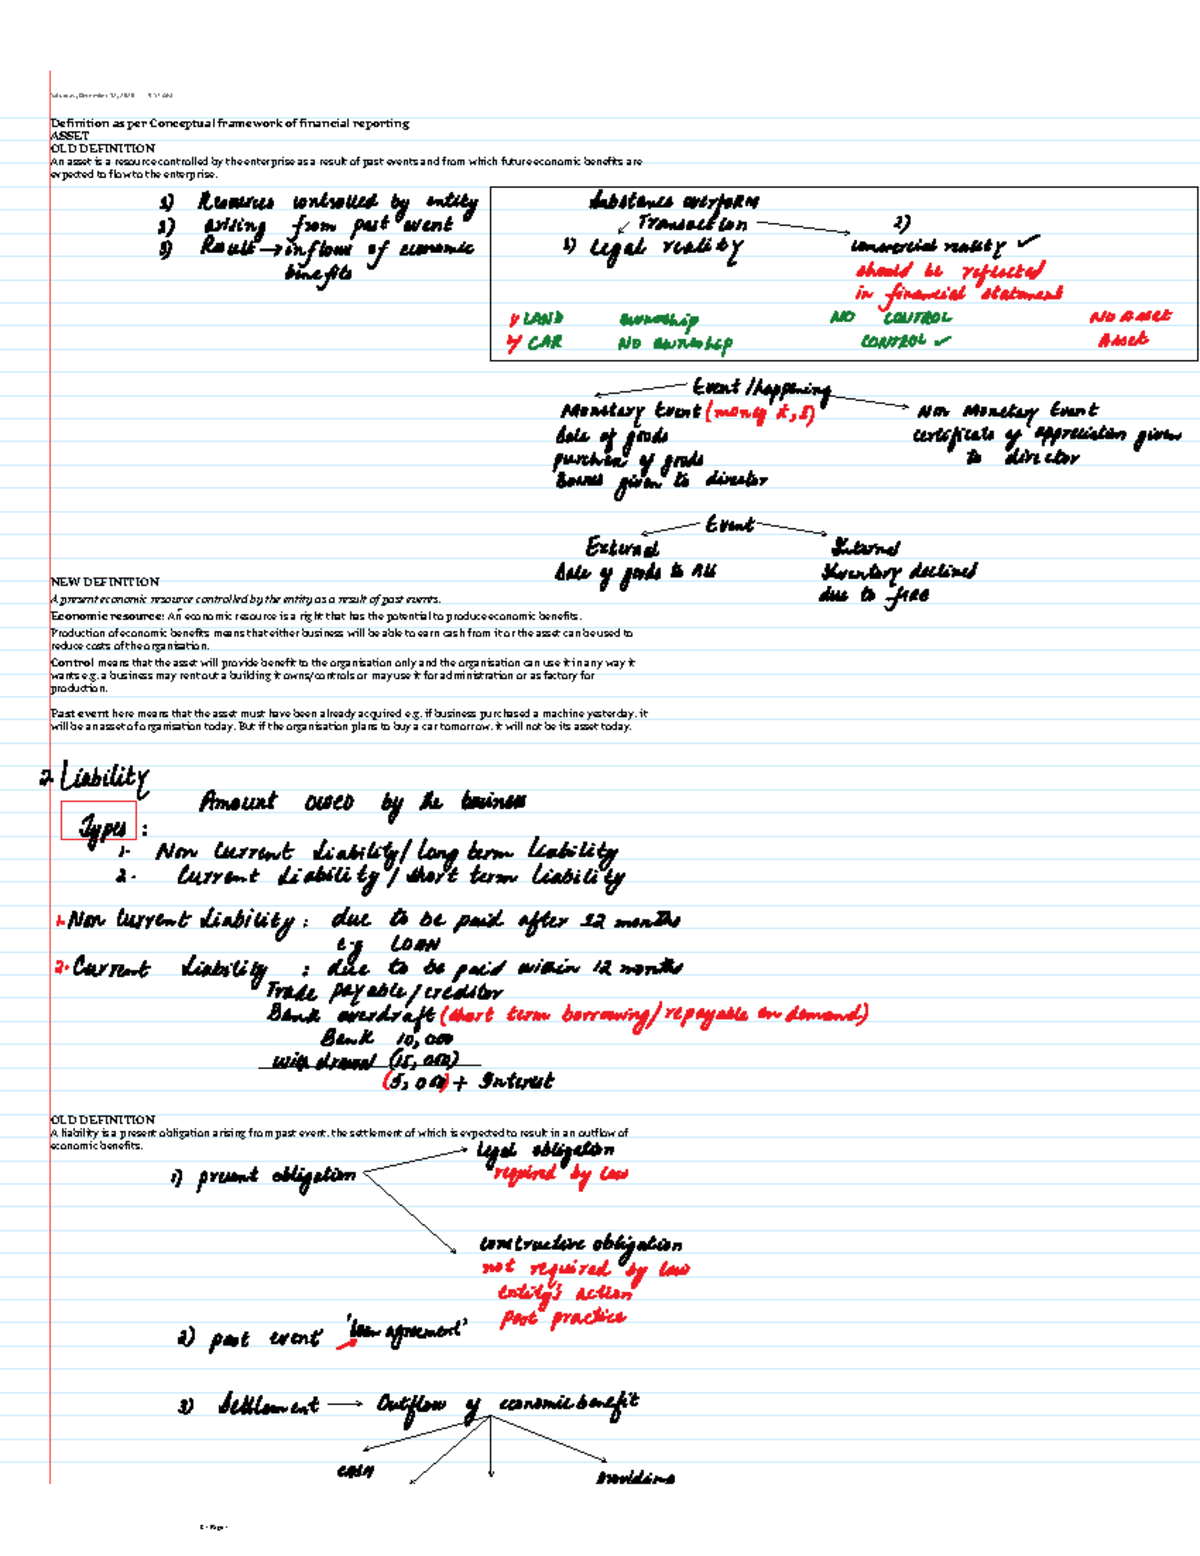 Definition as per Conceptual framework of financial reporting
ASSET
OLD DEFINITION
An asset is a resource controlled by the enterprise as a result of past events and from which future economic benefits are
expected to flow to the enterprise.
1) Resources controlled by entity
2) arising from past event
3) Result → inflow of economic
benefits
Substance over form
Transaction
1) Legal reality
2)
commercial reality ✓
should be reflected
in financial statement
LAND ownership NO CONTROL NO Asset
CAR NO ownership CONTROL ✓ Asset
Event / happening
Monetary Event (money
Sale of goods
purchase of goods
Bonus given to director
Non Monetary Event
certificate of appreciation given
to director
Event
External
Sale of goods to Ali
Internal
Inventory declined
due to fire
NEW DEFINITION
A present economic resource controlled by the entity as a result of past events.
Economic resource: An economic resource is a right that has the potential to produce economic benefits.
Production of economic benefits means that either business will be able to earn cash from it or the asset can be used to
reduce costs of the organisation.
Control means that the asset will provide benefit to the organisation only and the organisation can use it in any way it
wants e.g. a business may rent out a building it owns/controls or may use it for administration or as factory for
production.
Past event here means that the asset must have been already acquired e.g. if business purchased a machine yesterday, it
will be an asset of organisation today. But if the organisation plans to buy a car tomorrow, it will not be its asset today.
2. Liability
Amount owed by the business
Types :
1. Non Current Liability / Long term liability
2. Current Liability / short term liability
1. Non Current Liability : due to be paid after 12 months
e.g LOAN
2. Current Liability : due to be paid within 12 months
Trade payable / creditor
Bank overdraft (short term borrowing / repayable on demand)
Bank 10,000
withdrawal (15,000)
(5,000) + Interest
OLD DEFINITION
A liability is a present obligation arising from past event, the settlement of which is expected to result in an outflow of
economic benefits.
1) present obligation
Legal obligation
required by law
constructive obligation
not required by law
entity's action
past practice
2) past event 'loan agreement'
3) Settlement → Outflow of economic benefit
CASH
providing